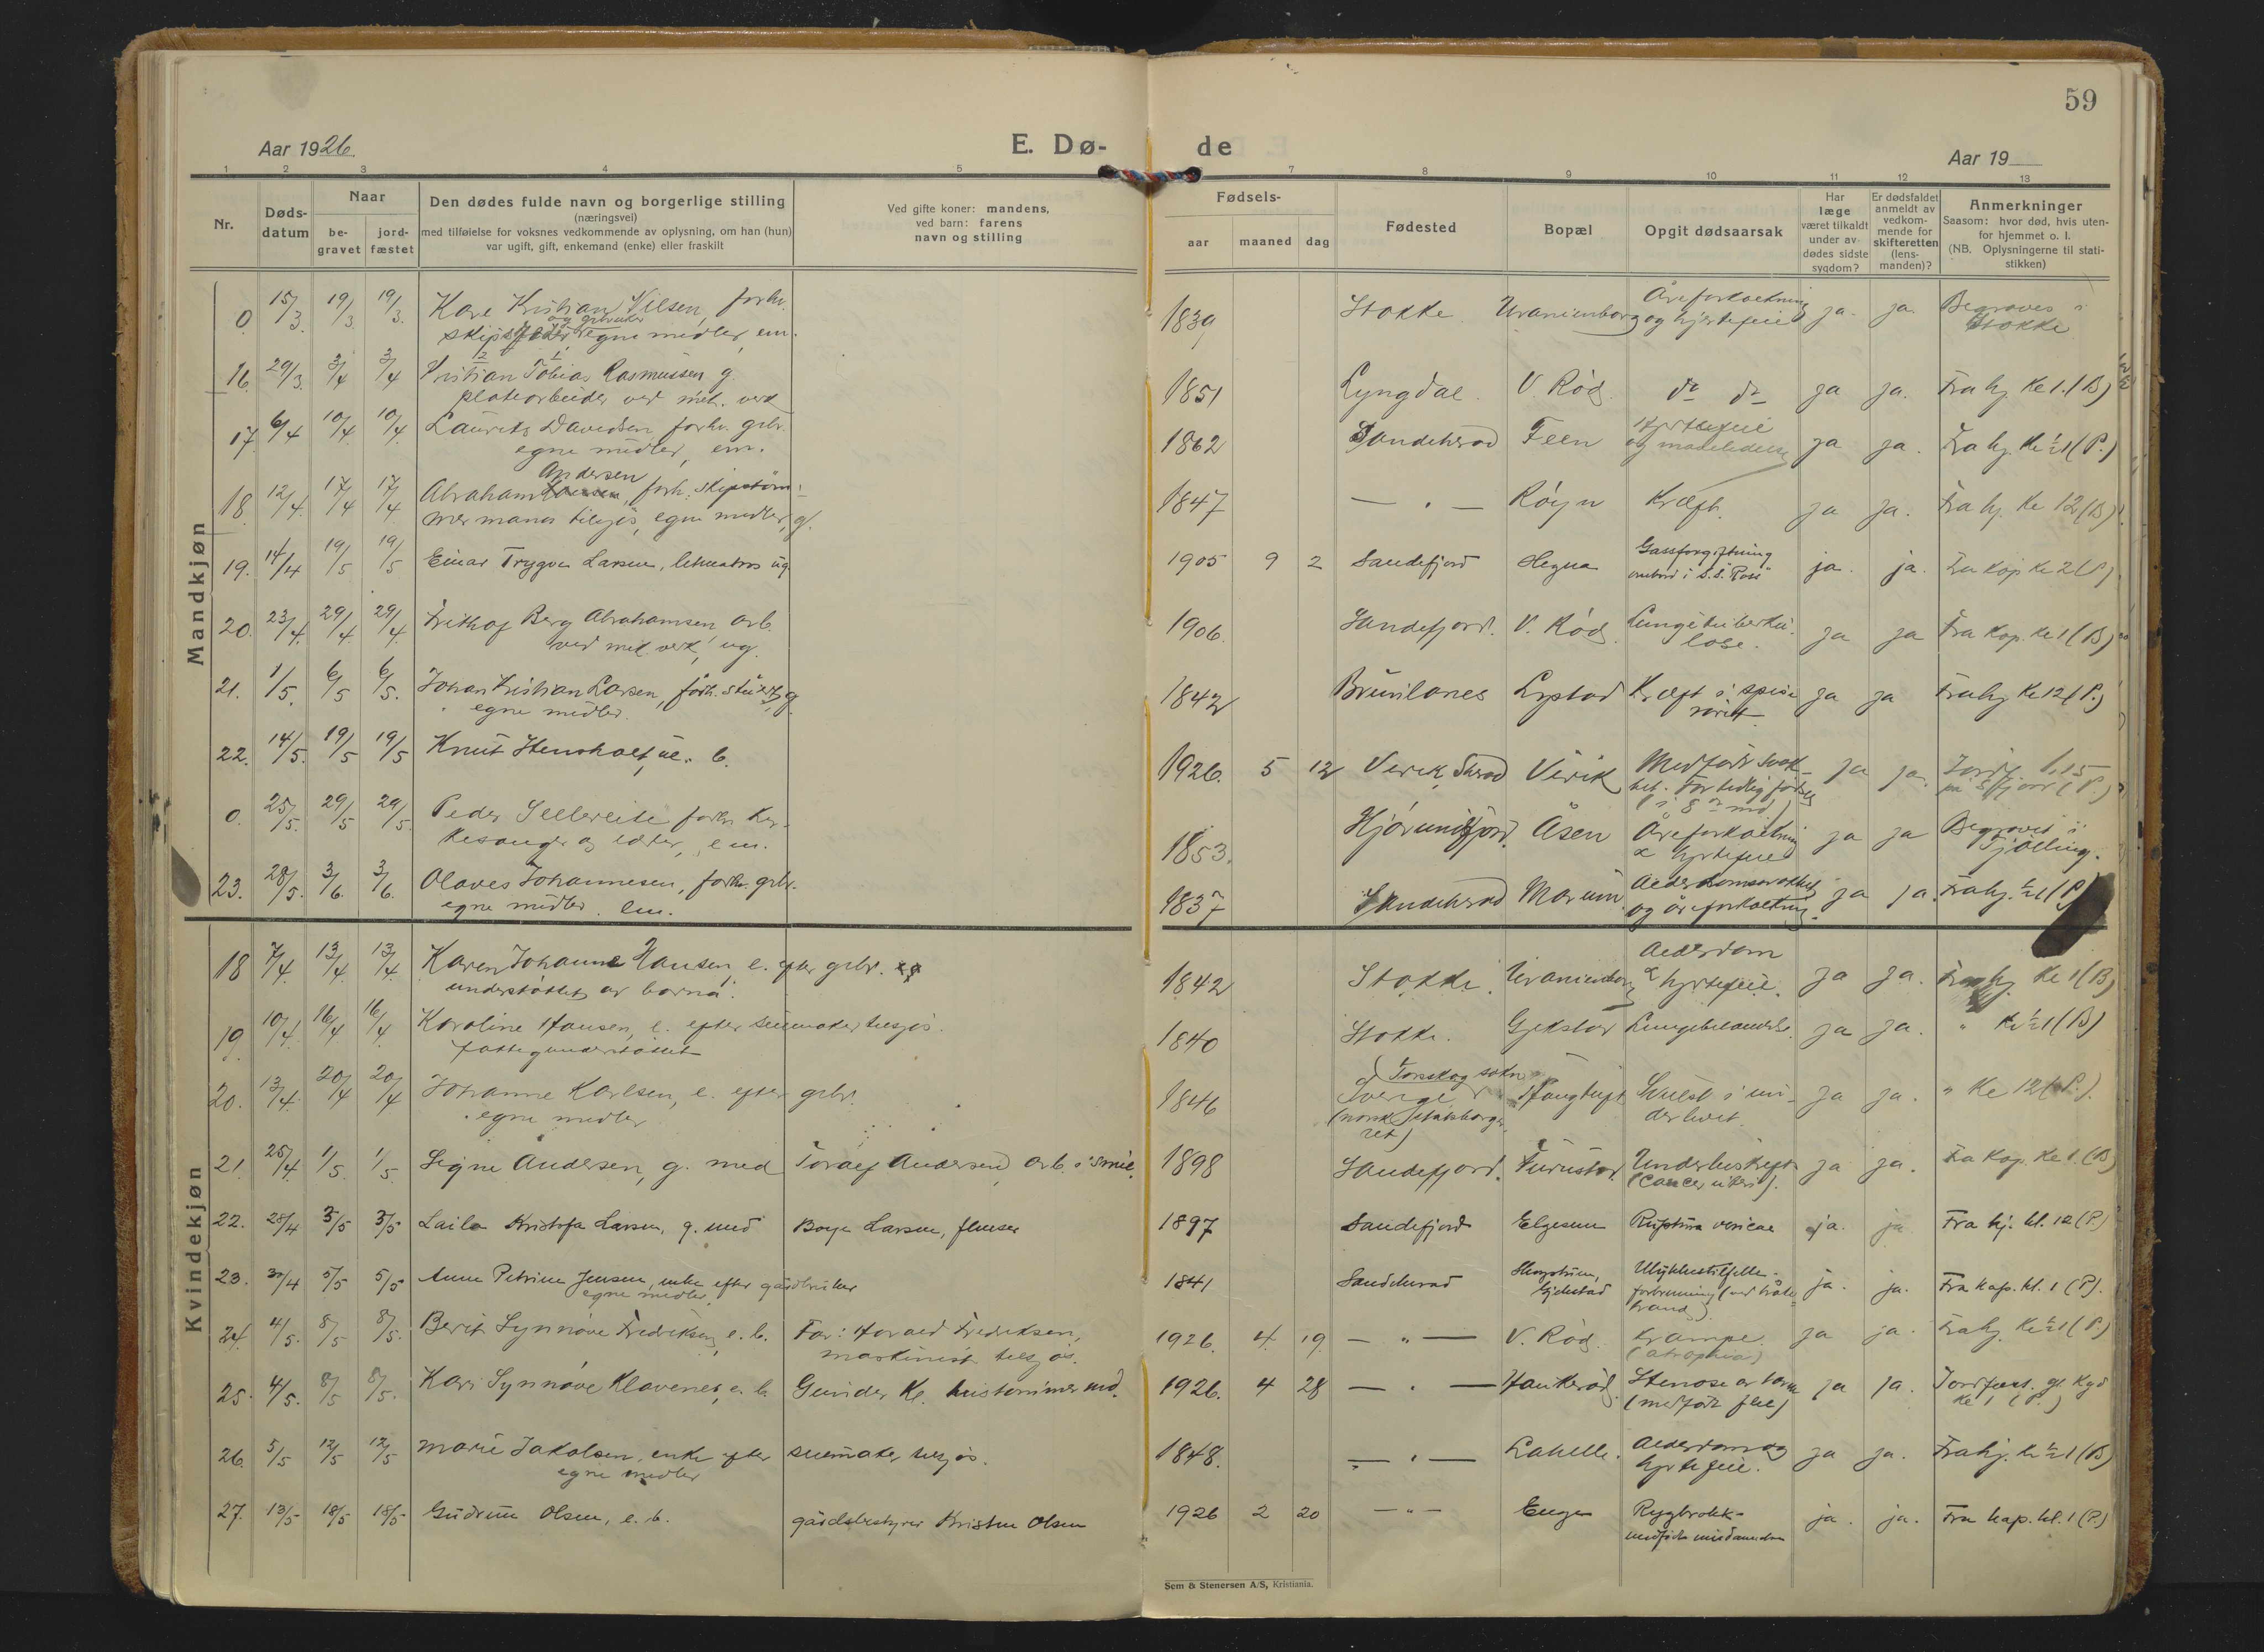 59
Aar 1926.
E. Dø-
de
Aar 19
1 2 3 4 5 7 8 9 10 11 12 13
Nr.
Døds-
datum
Naar
be-
gravet
jord-
fæstet
Den dødes fulde navn og borgerlige stilling
(næringsvei)
med tilføielse for voksnes vedkommende av oplysning, om han (hun)
var ugift, gift, enkemand (enke) eller fraskilt
Ved gifte koner: mandens,
ved barn: farens
navn og stilling
Fødsels-
aar maaned dag
Fødested
Bopæl
Opgit dødsaarsak
Har
læge
været tilkaldt
under av-
dødes sidste
sygdom?
Er dødsfaldet
anmeldt av
vedkom-
mende for
skifteretten
(lens-
manden)?
Anmerkninger
Saasom: hvor død, hvis uten-
for hjemmet o. l.
(NB. Oplysningerne til stati-
stikken)
Mandkjøn
0. 15/3. 19/3. 19/3. Kristian Nilsen, forhv. 1839 Stokke Uranienborg Åreforkalkning ja. ja. Begraves i
og grbruker
egne midler, em. og hjertefeil Stokke
16. 29/3. 3/4 3/4 Kristian Tobias Rasmussen g. 1851 Lyngdal. V. Rød. do do ja ja. Fra hj. Kl 1. (B)
platearbeider ved mek. verk
17. 6/4 10/4. 10/4. Laurits Davidsen forhv. grbr. 1862 Sandeherad Feen Hjertefeil ja ja. Fra hj. Kl ½1 (P.)
egne midler, em. og
Andersen
18. 12/4. 17/4 17/4 Abraham forh. skipstøm- 1847 — " — Røyn Kræft. ja ja. Fra hj. Kl 12 (B)
mermand tilsjøs, egne midler, g.
19. 14/4 19/5 19/5 Einar Trygve Larsen, letmatros ug. 1905 9 2 Sandefjord Hegna Gassforgiftning ja. ja. Fra kap Kl 2 (P)
ombord i S.S. "Ross"
20. 23/4. 29/4. 29/4. Frithof Berg Abrahamsen arb. 1906. Sandefjord. V. Rød. Lungetuberku- ja ja Fra kap. Kl 1 (B)
ved mek. verk, ug. lose.
21. 1/5. 6/5 6/5. Johan Kristian Larsen, forh. stuert, g. 1842 Brunlanes Lystad Kræft i spise- ja ja Fra hj Kl 12 (P.)
egne midler. røret
22. 14/5. 19/5 19/5 Knut Stensholt, u. b. 1926. 5 12 Virik, Virik Medfødt svak- ja ja. Jordf.
het. For tidlig fødsel
(i 8de md)
0. 25/5. 29/5 29/5. Peder forhv. kir- 1853. Hjørundfjord. Åsen Åreforkalkning ja ja Begravet i
kesanger og lærer, em. & hjertefeil Tjølling.
23. 28/5. 3/6. 3/6. Olaves Johannesen, forhv. grbr. 1837 Sandeherad Marum Alderdomssvakhet ja ja. Fra hj. ½1 (P)
egne midler. em. og åreforkalkning.
Kvindekjøn
18 7/4. 13/4. 13/4. Karen Johanne Hansen, e. efter grbr. 1842 Stokke. Uranienborg Alderdom ja ja. Fra hj. Kl 1 (B)
understøttet av barna. & hjertefeil.
19. 10/4. 16/4 16/4 Karoline Hansen, e. efter seilmaker tilsjøs. 1840 Stokke. Gjekstad Lungebetændelse. ja ja. " Kl ½1 (B)
fattigunderstøttet
20. 13/4. 20/4 20/4 Johanne Karlsen, e. efter grbr. 1846 (Torskog sokn Svulst i un- ja ja. " Kl 12 (P.).
egne midler Sverige derlivet.
(norsk statsborger-
ret)
21. 25/4. 1/5. 1/5. Signe Andersen, g. med Toralf Andersen, arb. i smie. 1898 Sandefjord. Furustad. Underlivskræft ja ja. Fra kap. Kl 1. (B)
(cancer uteri).
22. 28/4 3/5 3/5 Laila Kristofa Larsen, g. med Larsen, flenser 1897 Sandefjord Elgesem Ruptura vesicae ja. ja Fra hj. kl. 12 (P)
23. 30/4 5/5 5/5 Anne Petrine Jensen, enke efter gårdbruker 1841 Sandeherad Ulykkestilfelle - ja. ja. Fra kap. kl. 1 (P).
egne midler. Gjekstad forbrenning (ved
brand)
24. 4/5. 8/5 8/5. Berit Synnøve Fredriksen, e. b. Far: Harald Fredriksen, 1926. 4. 19. — " — V. Rød. Krampe ja ja. Fra hj. Kl ½1 (P)
maskinist tilsjøs. (atrophia)
25. 4/5. 8/5 8/5. Kari Synnøve Klavenes, e. b. Gunder Kl. hustømmermd. 1926. 4 28 — " — Haukerød. Stenose av tarm ja ja. Jordfæst. gl. kgd
(medfødt feil) Kl 1 (P.)
26. 5/5 12/5 12/5 Marie Jakobsen, enke efter seilmaker tilsjøs. 1848. — " — Lahelle. Alderdom og ja ja. Fra hj. kl ½1 (B)
egne midler hjertefeil.
27. 13/5 18/5 18/5 Gudrun Olsen, e. b. gårdsbestyrer Kristen Olsen 1926 2 20 — " — Enger Rygbrokk - ja. ja. Fra kap. kl. 1 (P.)
medfødt misdannelse
Sem & Stenersen A/S, Kristiania.